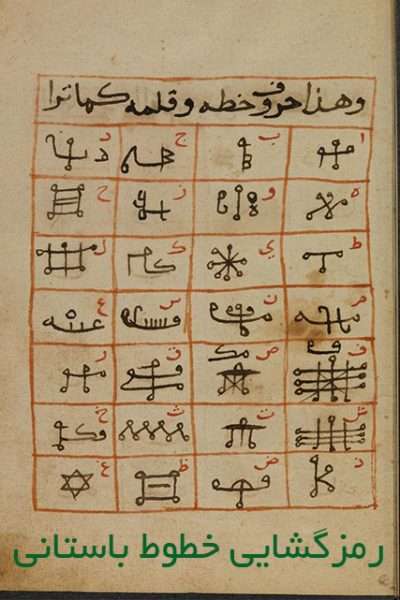 وهذا حروف خطه وقلمه كما ترا
ا ب ج د
ه و ز ح
ط ي ك ل
م ن س ع
ف ص ق ر
ش ت ث خ
ذ ض ظ غ
رمزگشایی خطوط باستانی